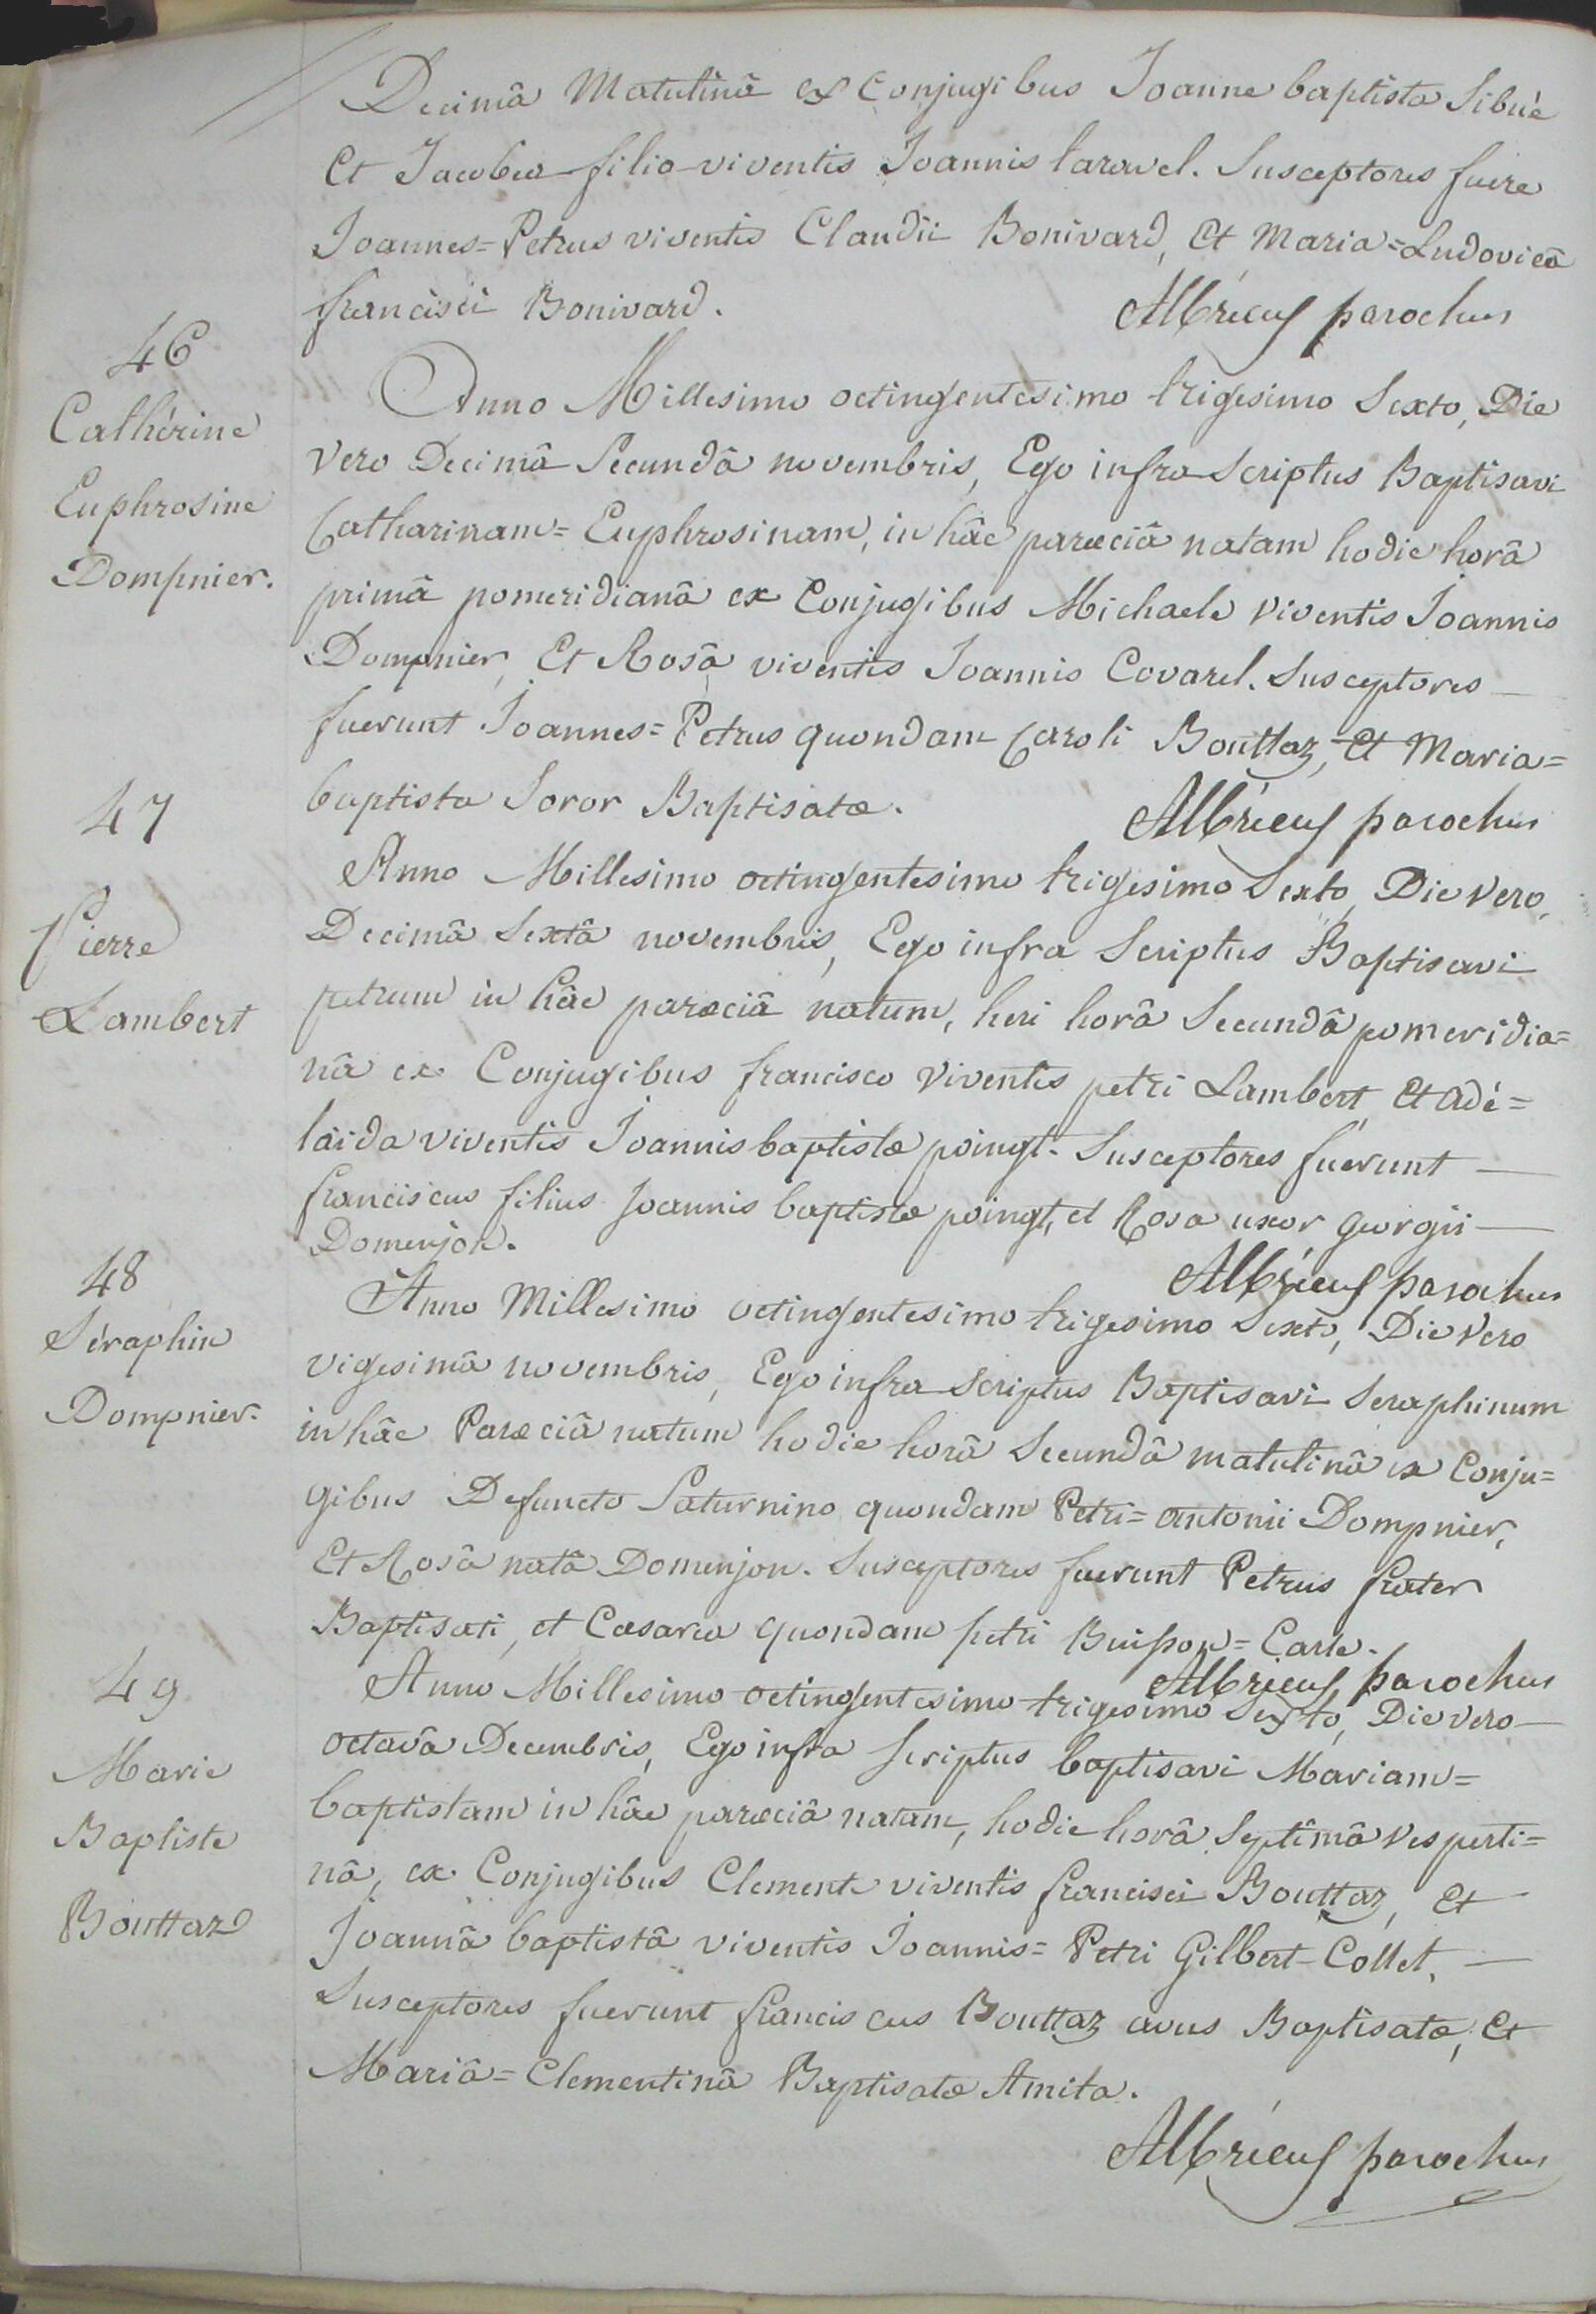 Decimâ Matutinâ ex Conjugibus Joanne baptista Sibué
Et Jacobea filia viventis Joannis taravel. Susceptores fuere
Joannes=Petrus viventis Claudii Bonivard, Et Maria=Ludovica
francisci Bonivard.
Albrieux parochus
46
Cathérine
Euphrosine
Dompnier.
Anno Millesimo octingentesimo trigesimo Sexto, Die
Vero Decimâ Secundâ novembris, Ego infra Scriptus Baptisavi
Catharinam=Euphrosinam, in hâc parœciâ natam hodie horâ
primâ pomeridianâ ex Conjugibus Michaele viventis Joannis
Dompnier, Et Rosâ viventis Joannis Covarel. Susceptores
fuerunt Joannes=Petrus quondam Caroli Bouttaz, Et Maria=
baptista Soror Baptisatæ.
Albrieux parochus
47
Pierre
Lambert
Anno Millesimo octingentesimo trigesimo Sexto, Die Vero,
Decimâ Sextâ novembris, Ego infra Scriptus Baptisavi
petrum in hâc parœciâ natum, heri horâ Secundâ pomeridia=
nâ ex Conjugibus francisco viventis petri Lambert Et adé=
laida viventis Joannis baptistæ poingt. Susceptores fuerunt
franciscus filius Joannis baptistæ poingt, et Rosa uxor georgii
Domenjon.
Albrieux parochus
48
Séraphin
Dompnier.
Anno Millesimo octingentesimo trigesimo Sexto, Die Vero
vigesimâ novembris, Ego infra Scriptus Baptisavi Seraphinum
in hâc Parœciâ natum hodie horâ Secundâ matutinâ ex Conju=
gibus Defuncto Saturnino quondam Petri=antonii Dompnier,
Et Rosâ natâ Domenjon. Susceptores fuerunt Petrus frater
Baptisati, et Cæsarea quondam petri Buisson=Carle.
Albrieux parochus
49
Marie
Baptiste
Bouttaz
Anno Millesimo octingentesimo trigesimo Sexto, Die vero
octavâ Decembris, Ego infra Scriptus baptisavi Mariam=
baptistam in hâc parœciâ natam, hodie horâ Septimâ Vesperti=
nâ, ex Conjugibus Clemente viventis francisci Bouttaz, Et
Joannâ baptistâ viventis Joannis=Petri Gilbert-Collet.
Susceptores fuerunt franciscus Bouttaz avus Baptisatæ, Et
Mariâ=Clementinâ Baptisatæ Amita.
Albrieux parochus